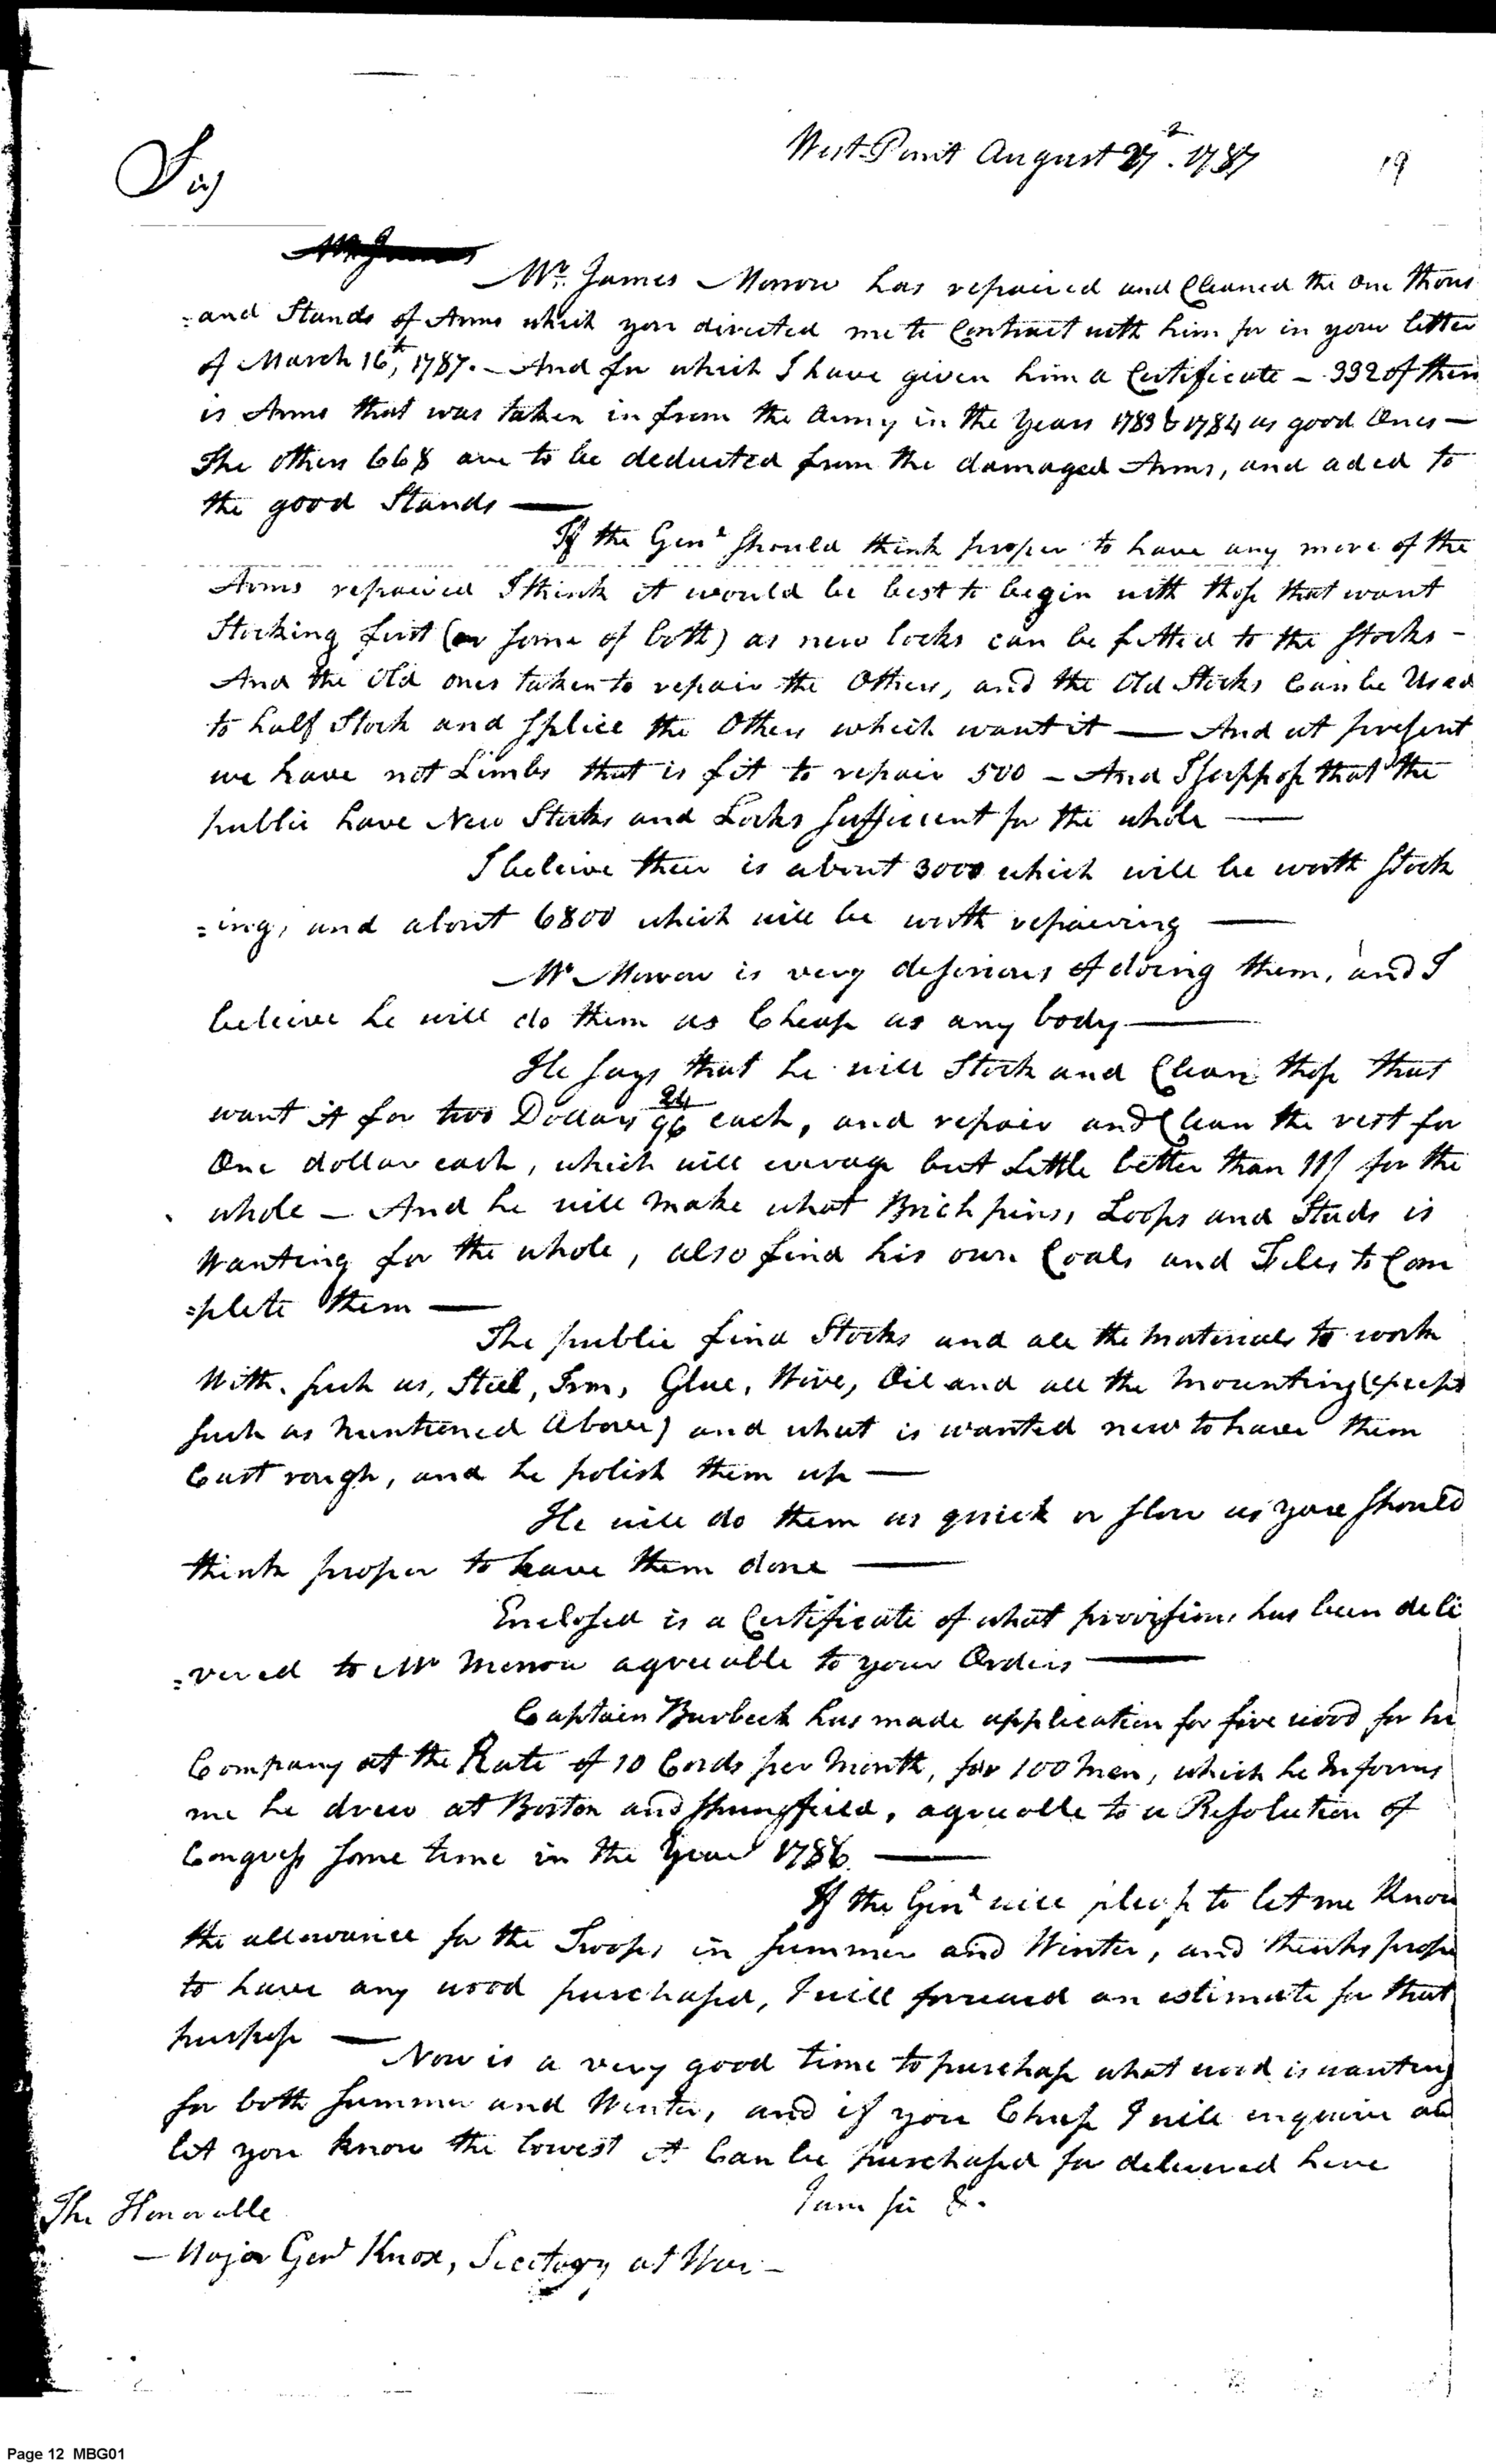 West-Point August 27th. 1787
19
Sir,
Mr. James
Mr. James Morrow has repaired and Cleaned the one thous
=and Stands of Arms which you directed me to Contract with him for in your letter
of March 16th, 1787. – And for which I have given him a Certificate – 332 of them
is Arms that was taken in from the Army in the Years 1783 & 1784 as good Ones —
The others 668 are to be deducted from the damaged Arms, and aded to
the good Stands —
If the Genl should think proper to have any more of the
Arms repaired I think it would be best to begin with those that want
Stocking first (or some of both) as new locks can be fitted to the stocks –
And the old ones taken to repair the Others, and the Old Stocks Can be Used
to half Stock and splice the Others which want it — And at present
we have not Limbs that is fit to repair 500 – And I suppose that the
public have New Stocks and Locks sufficient for the whole —
I beleive their is about 3000 which will be worth stock
=ing, and about 6800 which will be worth repairing —
Mr Morrow is very desirious of doing them, and I
beleive he will do them as Cheap as any body —
He says that he will Stock and Clean those that
want it for two Dollars 24/96 each, and repair and Clean the rest for
One dollar each, which will everage but Little better than 11/ for the
whole – And he will make what Brich pins, Loops and Studs is
Wanting for the whole, also find his own Coals and Files to Com
=plete them —
The public find Stocks and all the materials to work
With. such as, Steel, Iron, Glue, Wire, Oil and all the mounting (except
such as mentioned above) and what is wanted new to have them
Cast rough, and he polish them up —
He will do them as quick or slow as you should
think proper to have them done —
Enclosed is a Certificate of what provisions has been deli
=vered to Mr Morrow agreeable to your Orders —
Captain Burbeck has made application for fire wood for his
Company at the Rate of 10 Cords per Month, for 100 men, which he Informs
me he drew at Boston and Springfield, agreeable to a Resolution of
Congress some time in the Year 1786. —
If the Genl will please to let me Know
the allowance for the Troops, in summer and Winter, and thinks proper
to have any wood purchased, I will forward an estimate for that
purpose —
Now is a very good time to purchase what wood is wanting
for both summer and Winter, and if you Chuse I will enquire and
let you know the lowest it Can be purchased for delivered here
I am sir &.
The Honorable
– Major Genl Knox, Secetary at War –
Page 12 MBG01